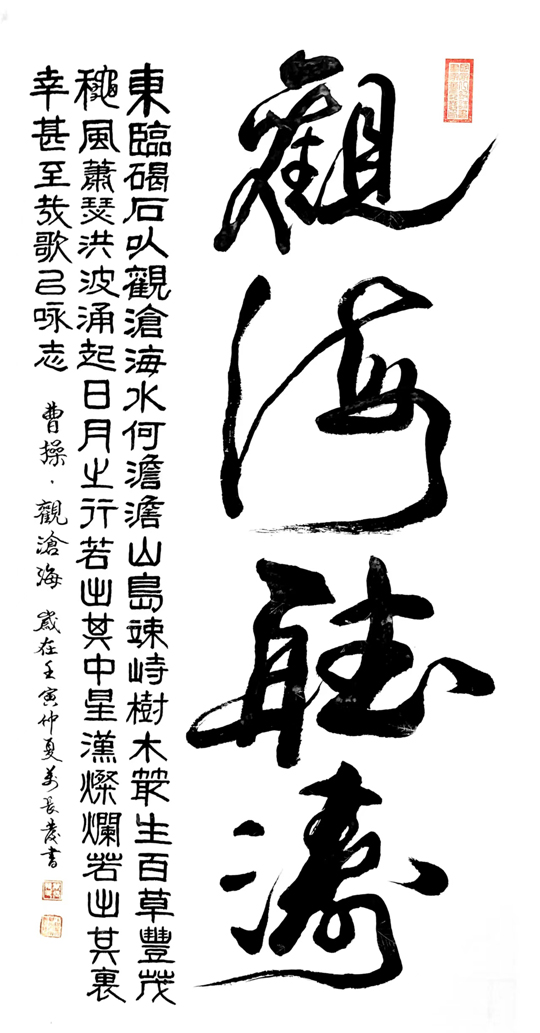 觀海聽濤
東臨碣石以觀滄海水何澹澹山島竦峙樹木叢生百草豐茂
穐風蕭瑟洪波涌起日月之行若出其中星漢燦爛若出其裏
幸甚至哉歌以咏志
曹操·觀滄海 歲在壬寅仲夏姜長慶書